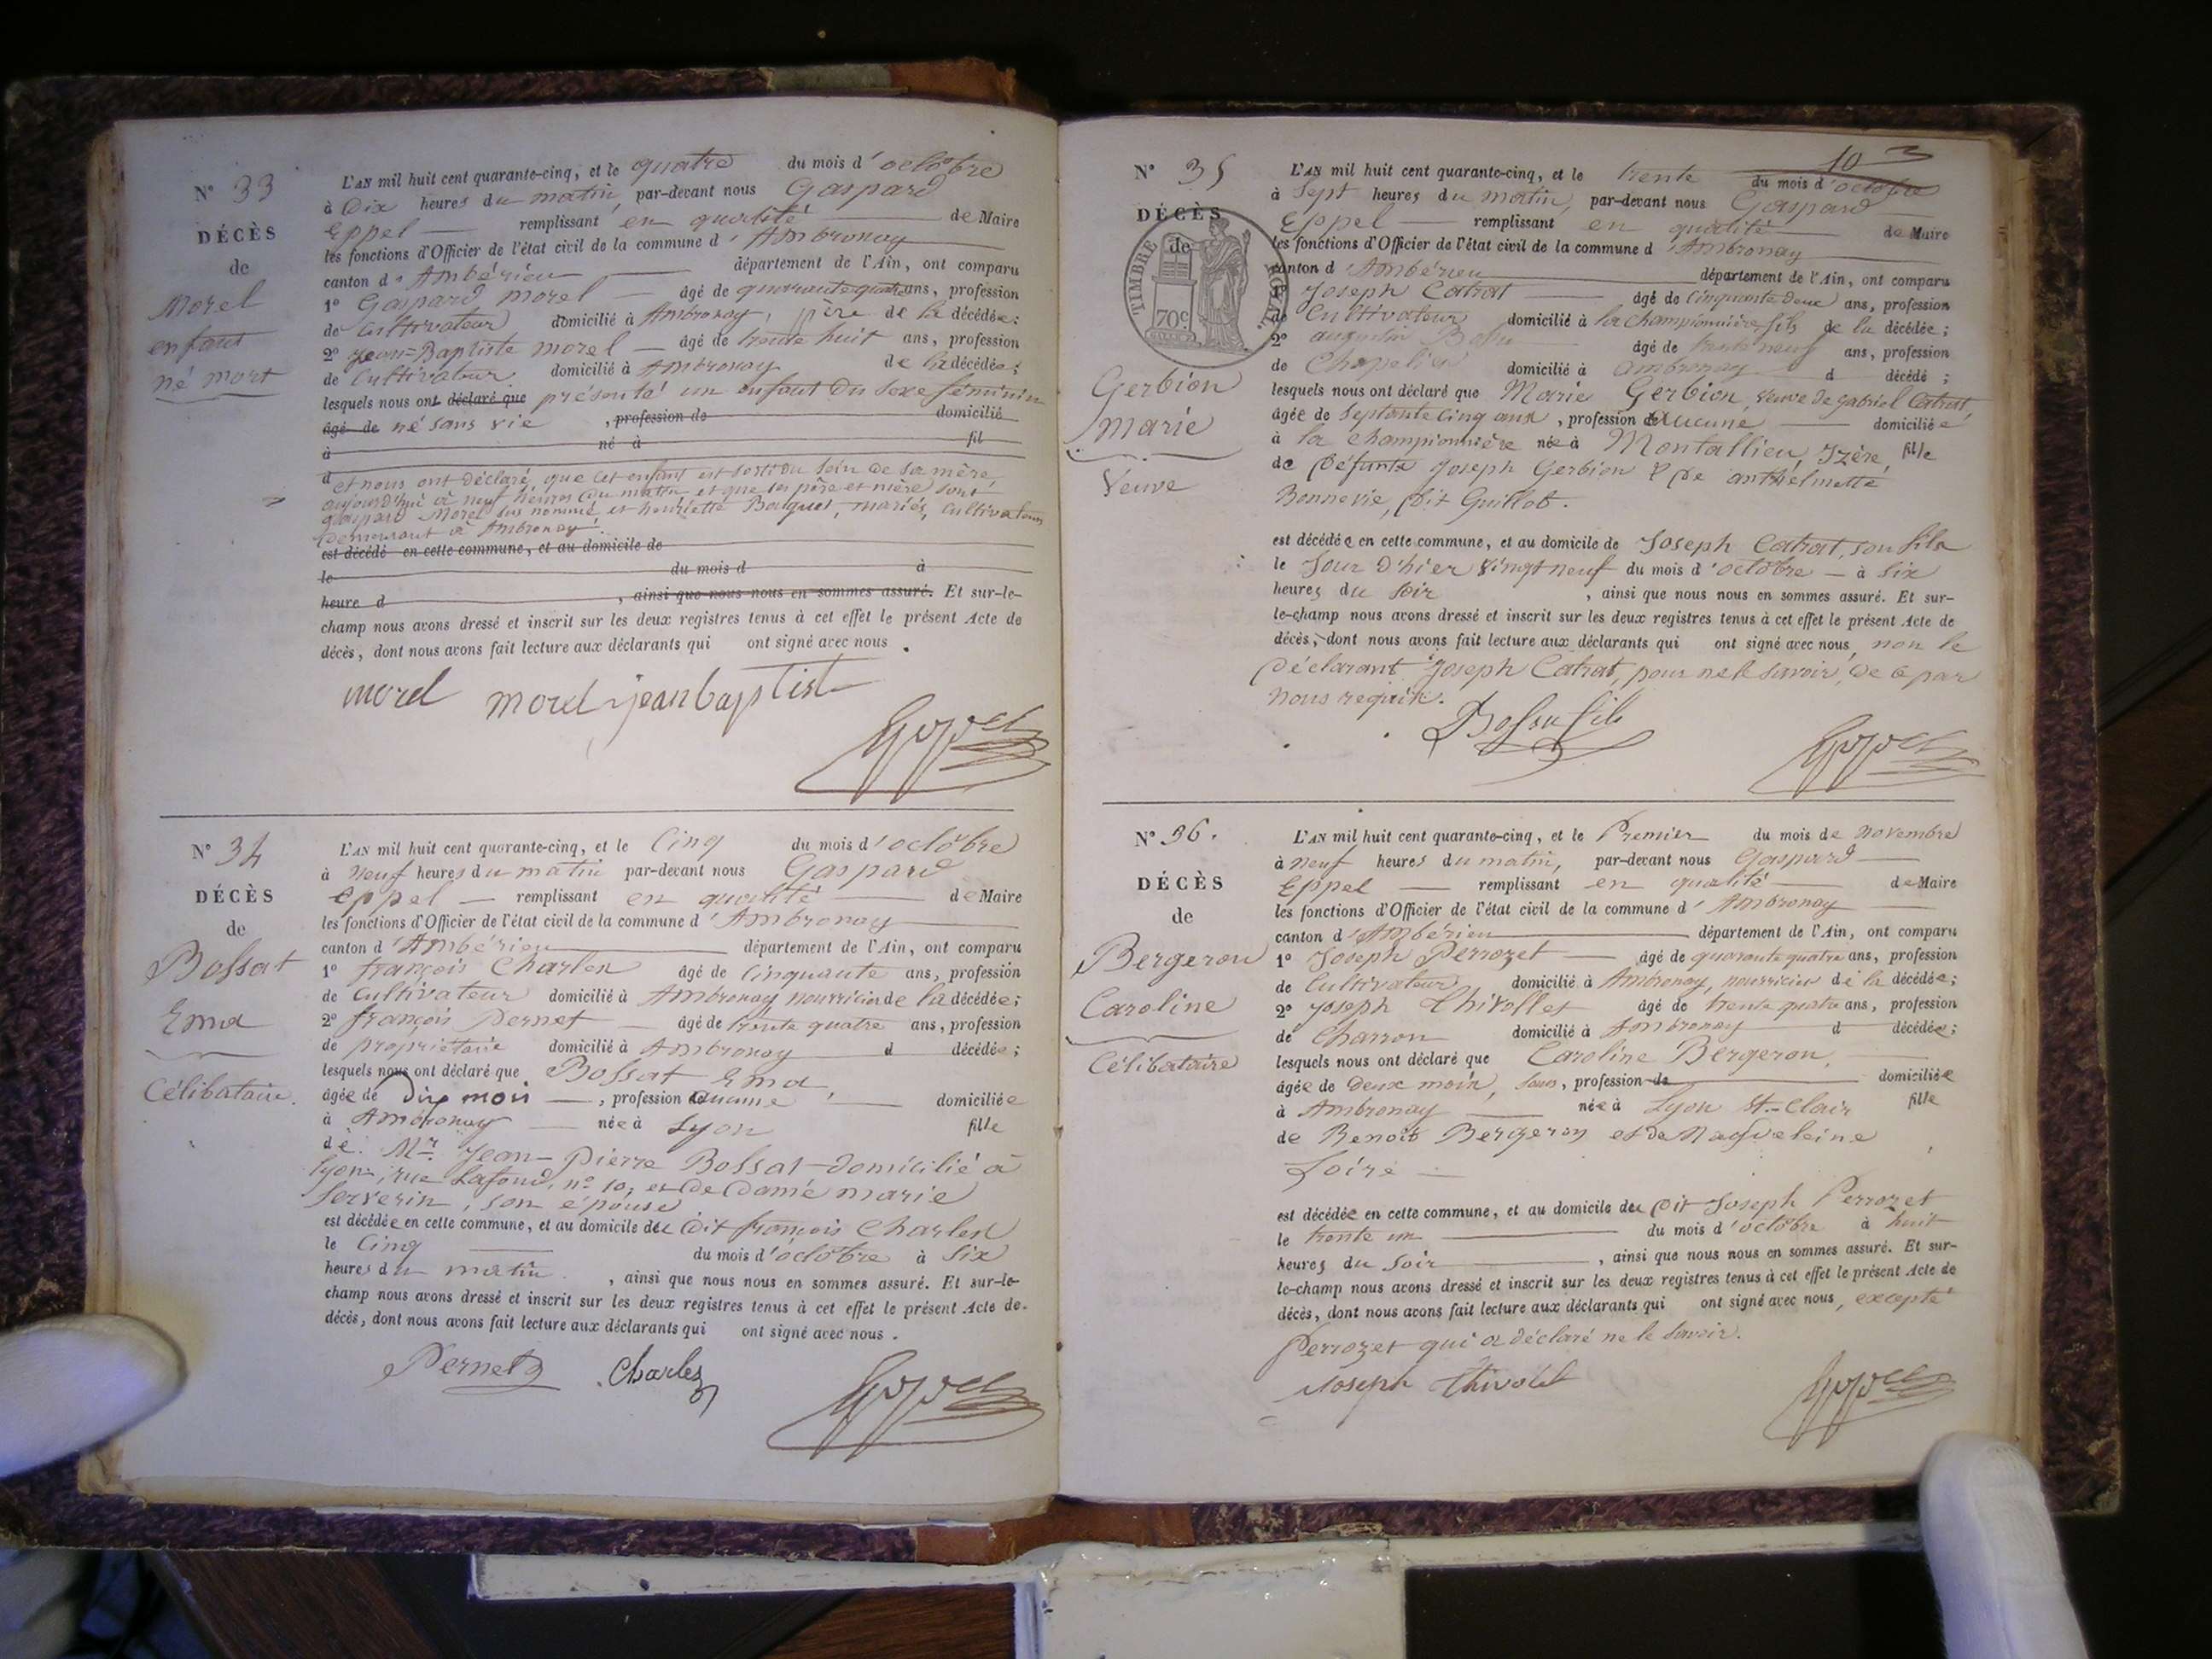 N° 33
DÉCÈS
de
Morel
enfant
né mort
L'AN mil huit cent quarante-cinq, et le quatre du mois d'octobre
à Dix heures du matin, par-devant nous Gaspard
Eppel remplissant en qualité de Maire
les fonctions d'Officier de l'état civil de la commune d'Ambronay
canton d'Ambérieu département de l'Ain, ont comparu
1° Gaspard Morel âgé de quarante quatre ans, profession
de Cultivateur domicilié à Ambronay, père de la décédée;
2° Jean-Baptiste Morel âgé de trente huit ans, profession
de Cultivateur domicilié à Ambronay de la décédée;
lesquels nous ont déclaré que présenté un enfant du sexe féminin
âgé de né sans vie , profession de domicilié
à né à fil
d et nous ont déclaré que cet enfant est sorti du sein de sa mère
aujourd'hui à neuf heures du matin et que ses père et mère sont
gaspard Morel sus nommé et henriette Bouquet, mariés, cultivateurs
demeurant à Ambronay.
est décédé en cette commune, et au domicile de
le du mois d à
heure d , ainsi que nous nous en sommes assuré. Et sur-le-
champ nous avons dressé et inscrit sur les deux registres tenus à cet effet le présent Acte de
décès, dont nous avons fait lecture aux déclarants qui ont signé avec nous.
morel morel jean baptist
Eppel
N° 34
DÉCÈS
de
Bossat
Ema
Célibataire.
L'AN mil huit cent quarante-cinq, et le Cinq du mois d'octobre
à Neuf heures du matin par-devant nous Gaspard
Eppel remplissant en qualité de Maire
les fonctions d'Officier de l'état civil de la commune d'Ambronay
canton d'Ambérieu département de l'Ain, ont comparu
1° françois Charles âgé de Cinquante ans, profession
de Cultivateur domicilié à Ambronay nourricier de la décédée;
2° françois Pernet âgé de trente quatre ans, profession
de propriétaire domicilié à Ambronay d décédée;
lesquels nous ont déclaré que Bossat Ema
âgée de Dix mois , profession aucune domiciliée
à Ambronay née à Lyon fille
de Mr. Jean-Pierre Bossat domicilié à
Lyon, rue Lafond, n° 10, et de Dame Marie
Serverin, son épouse
est décédée en cette commune, et au domicile du Dit françois Charles
le Cinq du mois d'octobre à Six
heures du matin , ainsi que nous nous en sommes assuré. Et sur-le-
champ nous avons dressé et inscrit sur les deux registres tenus à cet effet le présent Acte de
décès, dont nous avons fait lecture aux déclarants qui ont signé avec nous.
Pernet Charles
Eppel
10
N° 35
DÉCÈS
de
TIMBRE ROYAL.
70c
Gerbion
Marie
Veuve
L'AN mil huit cent quarante-cinq, et le trente du mois d'octobre
à Sept heures du matin, par-devant nous Gaspard
Eppel remplissant en qualité de Maire
les fonctions d'Officier de l'état civil de la commune d'Ambronay
canton d'Ambérieu département de l'Ain, ont comparu
1° Joseph Catrat âgé de Cinquante Deux ans, profession
de Cultivateur domicilié à la Championnière, fils de la décédée;
2° augustin Bossu âgé de trente neuf ans, profession
de Chapelier domicilié à Ambronay d décédé;
lesquels nous ont déclaré que Marie Gerbion, veuve de gabriel Catrat,
âgée de Septante Cinq ans, profession aucune domiciliée
à la Championnière née à Montallieu, Izère, fille
de Défunts Joseph Gerbion & De anthelmette
Bonnevie, Dit Guillot.
est décédée en cette commune, et au domicile de Joseph Catrat, son fils
le Jour d'hier vingt neuf du mois d'octobre à Six
heures du Soir , ainsi que nous nous en sommes assuré. Et sur-
le-champ nous avons dressé et inscrit sur les deux registres tenus à cet effet le présent Acte de
décès, dont nous avons fait lecture aux déclarants qui ont signé avec nous, non le
Déclarant Joseph Catrat, pour ne le savoir, de ce par
nous requis.
Bossu fils
Eppel
N° 36.
DÉCÈS
de
Bergeron
Caroline
Célibataire
L'AN mil huit cent quarante-cinq, et le Premier du mois de novembre
à neuf heures du matin, par-devant nous Gaspard
Eppel remplissant en qualité de Maire
les fonctions d'Officier de l'état civil de la commune d'Ambronay
canton d'Ambérieu département de l'Ain, ont comparu
1° Joseph Perrozet âgé de quarante quatre ans, profession
de Cultivateur domicilié à Ambronay, nourricier de la décédée;
2° Joseph Thivollet âgé de trente quatre ans, profession
de Charron domicilié à Ambronay d décédée;
lesquels nous ont déclaré que Caroline Bergeron,
âgée de Deux mois, sans, profession de domiciliée
à Ambronay née à Lyon St.-Clair fille
de Benoit Bergeron et de Magdeleine
Loire
est décédée en cette commune, et au domicile du Dit Joseph Perrozet
le trente un du mois d'octobre à huit
heures du Soir , ainsi que nous nous en sommes assuré. Et sur-
le-champ nous avons dressé et inscrit sur les deux registres tenus à cet effet le présent Acte de
décès, dont nous avons fait lecture aux déclarants qui ont signé avec nous, excepté
Perrozet qui a déclaré ne le savoir.
Joseph Thivolet
Eppel